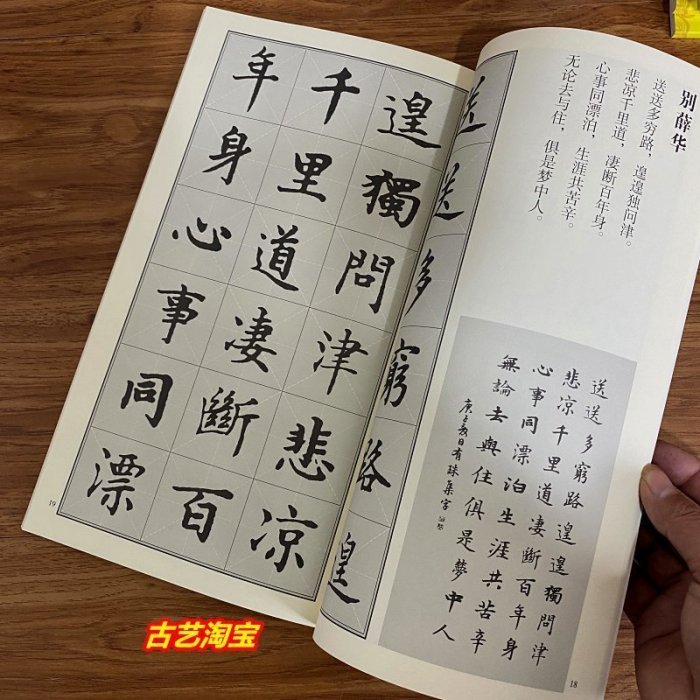 别薛华
送送多穷路，遑遑独问津。
悲凉千里道，凄断百年身。
心事同漂泊，生涯共苦辛。
无论去与住，俱是梦中人。
送送多窮路遑遑獨問津
悲凉千里道凄斷百年身
心事同漂泊生涯共苦辛
無論去與住俱是夢中人
日有珠集字
18
送送多窮路遑
遑獨問津悲凉
千里道凄斷百
年身心事同漂
19
古艺淘宝